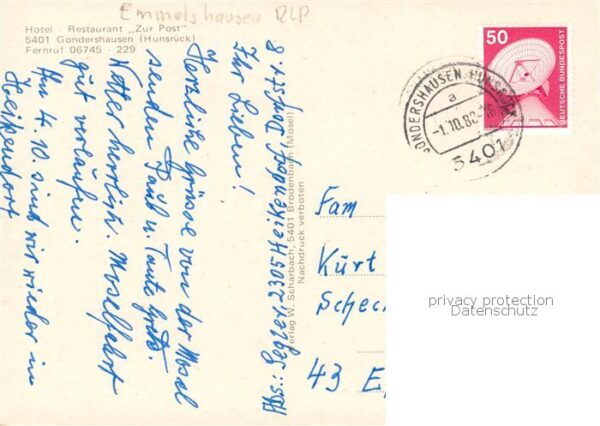 Emmelshausen RLP
Hotel - Restaurant „Zur Post"
5401 Gondershausen (Hunsrück)
Fernruf 06745 - 229
Ihr Lieben!
Herzliche Grüsse von der Mosel
senden Paul u. Tante Greta.
Wetter herrlich. Moselfahrt
gut verlaufen.
Am 4.10. sind wir wieder in
Heikendorf
Verlag W. Scharbach, 5401 Brodenbach (Mosel)
Nachdruck verboten
2305 Heikendorf,
50
DEUTSCHE BUNDESPOST
GONDERSHAUSEN, HUNSRÜCK
a
-1.10.80
5401
Fam
Kurt
Schec
43 E
privacy protection
Datenschutz